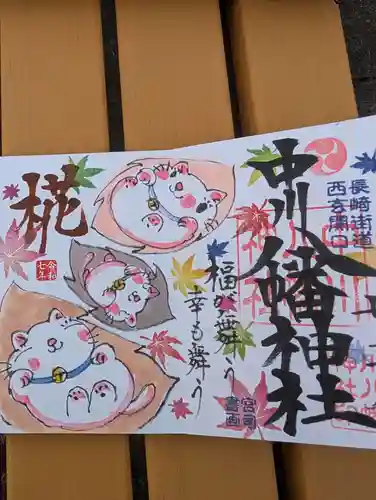 長崎街道
西玄関口
中川八幡神社
福が舞う
幸も舞う
宮司
書画
椛
令和
七年